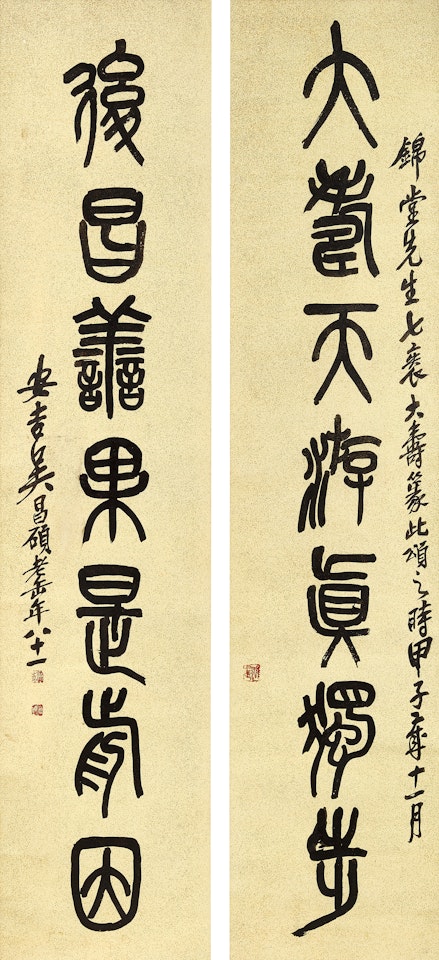 錦堂先生七袠大壽篆此頌之時甲子歲十一月
大耋天游眞獨步
後昌善果是前因
安吉吳昌碩老缶年八十一